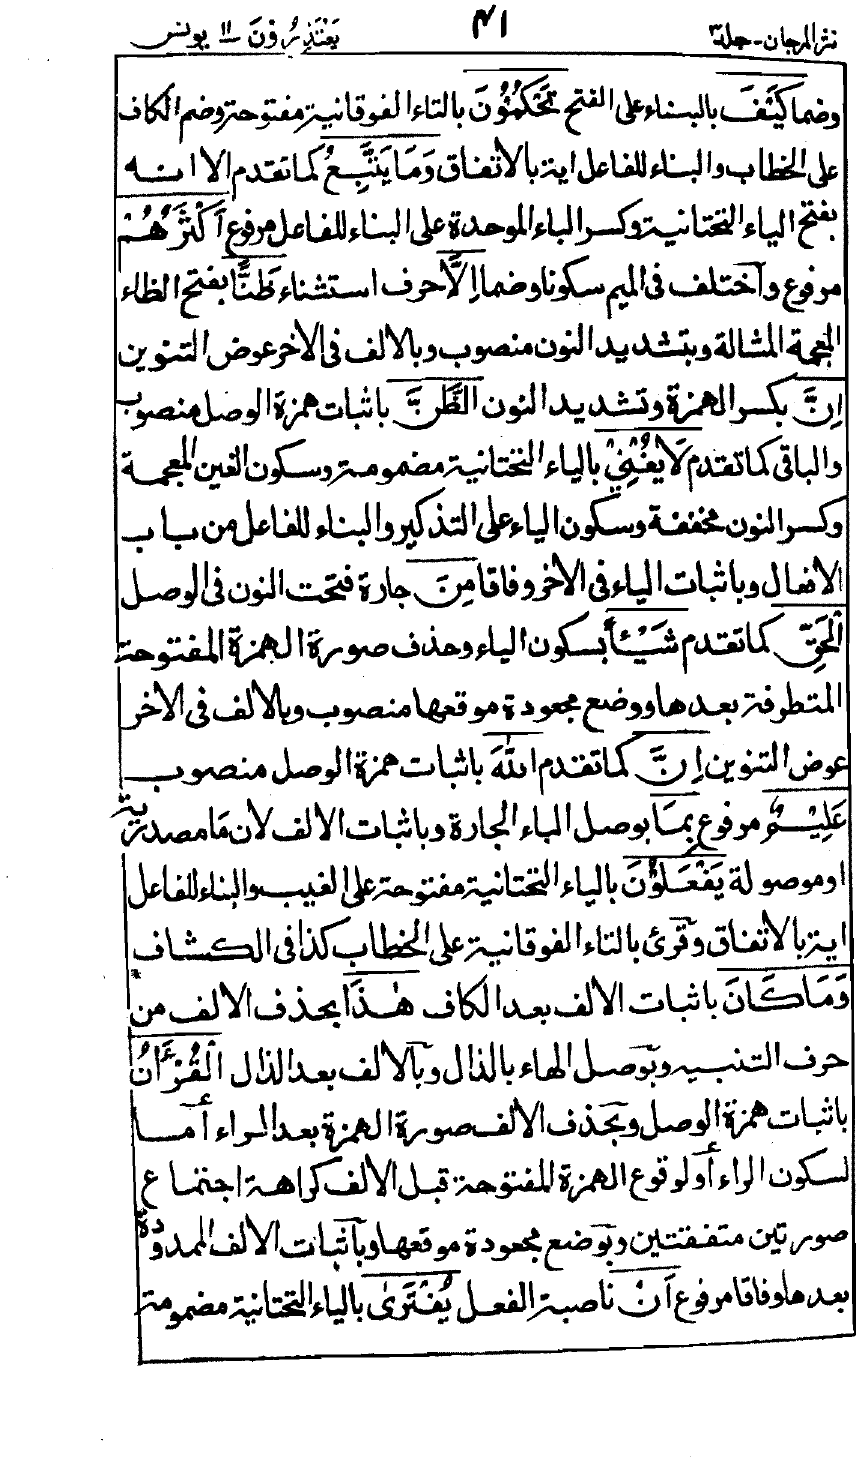 نثر المرجان - جلد ٣ ٤١ يَعْتَذِرُونَ ١١ يونس
وضما كَيْفَ بالبناء على الفتح تَحْكُمُوْنَ بالتاء الفوقانية مفتوحة وضم الكاف
على الخطاب والبناء للفاعل اية بالاتفاق وَمَا يَتَّبِعُ كما تقدم الا انه
بفتح الياء التحتانية وكسر الباء الموحدة على البناء للفاعل مرفوع اَكْثَرُهُمْ
مرفوع واختلف فى الميم سكونا وضما اِلَّا حرف استثناء ظَنًّا بفتح الظاء
المعجمة المشالة وبتشديد النون منصوب وبالالف فى الاخر عوض التنوين
اِنَّ بكسر الهمزة وتشديد النون الظَّنَّ باثبات همزة الوصل منصوب
والباقى كما تقدم لَا يُغْنِيْ بالياء التحتانية مضمومة وسكون الغين المعجمة
وكسر النون مخففة وسكون الياء على التذكير والبناء للفاعل من باب
الافعال وباثبات الياء فى الاخر وفاقا مِنَ جارة فتحت النون فى الوصل
الْحَقِّ كما تقدم شَيْـًٔا بسكون الياء وحذف صورة الهمزة المفتوحة
المتطرفة بعدها ووضع مجعودة موقعها منصوب وبالالف فى الاخر
عوض التنوين اِنَّ كما تقدم اللهَ باثبات همزة الوصل منصوب
عَلِيْمٌ مرفوع بِمَا بوصل الباء الجارة وباثبات الالف لان مَا مصدرية
او موصولة يَفْعَلُوْنَ بالياء التحتانية مفتوحة على الغيب والبناء للفاعل
اية بالاتفاق وقرئ بالتاء الفوقانية على الخطاب كذا فى الكشاف
وَمَا كَانَ باثبات الالف بعد الكاف هٰذَا بحذف الالف من
حرف التنبيه وبوصل الهاء بالذال وبالالف بعد الذال الْقُرْاٰنُ
باثبات همزة الوصل وبحذف الالف صورة الهمزة بعد الراء أما
لسكون الراء أو لوقوع الهمزة المفتوحة قبل الالف كراهة اجتماع
صورتين متفقتين وبوضع مجعودة موقعها وباثبات الالف الممدودة
بعدها وفاقا مرفوع اَنْ ناصبة الفعل يُفْتَرٰى بالياء التحتانية مضمومة